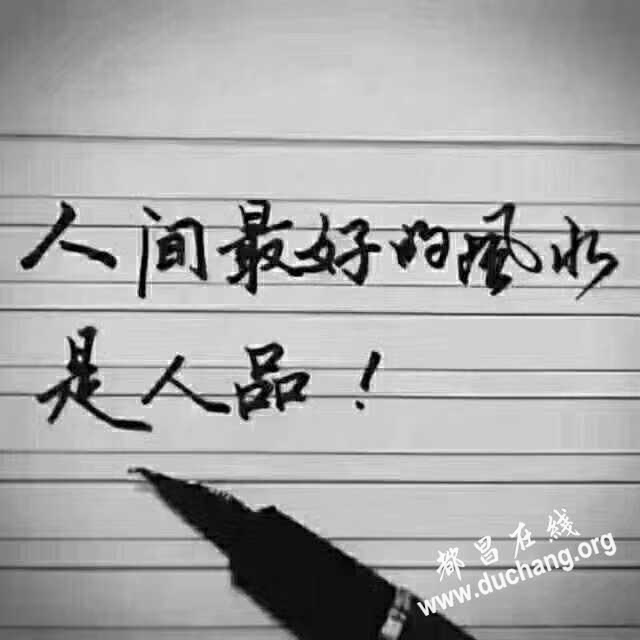 人间最好的風水
是人品！
都昌在綫
www.duchang.org